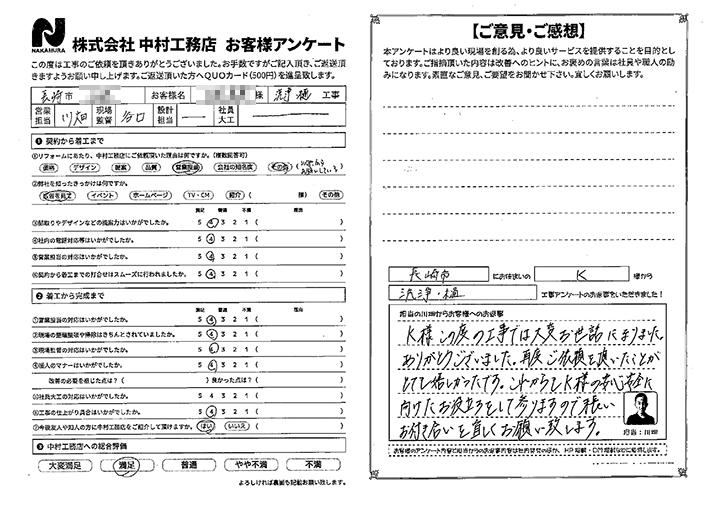 NAKAMURA
株式会社 中村工務店 お客様アンケート
この度は工事のご依頼を頂きありがとうございました。お手数ですがご記入頂き、ご返送頂
きますようお願い申し上げます。ご返送頂いた方へQUOカード(500円)を進呈致します。
長崎市 お客様名 様 洗浄・樋 工事
営業担当 川畑 現場監督 谷口 設計担当 ― 社員大工 ―
❶ 契約から着工まで
①リフォームにあたり、中村工務店にご依頼頂いた理由は何ですか。(複数回答可)
価格 デザイン 提案 品質 営業担当 会社の知名度 その他
②弊社を知ったきっかけは何ですか。
広告を見て イベント ホームページ TV・CM 紹介( 様) その他
満足 普通 不満 理由
③間取りやデザインなどの提案力はいかがでしたか。 5 4 3 2 1 ( )
④社内の電話対応等はいかがでしたか。 5 4 3 2 1 ( )
⑤営業担当の対応はいかがでしたか。 5 4 3 2 1 ( )
⑥契約から着工までの打合せはスムーズに行われましたか。 5 4 3 2 1 ( )
❷ 着工から完成まで
満足 普通 不満 理由
①営業担当の対応はいかがでしたか。 5 4 3 2 1 ( )
②現場の整理整頓や掃除はきちんとされていましたか。 5 4 3 2 1 ( )
③現場監督の対応はいかがでしたか。 5 4 3 2 1 ( )
④職人のマナーはいかがでしたか。 5 4 3 2 1 ( )
改善の必要を感じた点は?( )良かった点は?( )
⑤社員大工の対応はいかがでしたか。 5 4 3 2 1 ( )
⑥工事の仕上がり具合はいかがでしたか。 5 4 3 2 1 ( )
⑦今後友人や知人の方に中村工務店をご紹介して頂けますか。 (はい いいえ )
❸ 中村工務店への総合評価
大変満足 満足 普通 やや不満 不満
よろしければ裏面も記載お願い致します。
【ご意見・ご感想】
本アンケートはより良い現場を創る為、より良いサービスを提供することを目的とし
ております。ご指摘頂いた内容は改善へのヒントに、お褒めの言葉は社員や職人の励
みになります。素直なご意見、ご要望をお聞かせ下さい。宜しくお願いします。
長崎市 にお住まいの K 様から
洗浄・樋 工事アンケートのお返事をいただきました!
担当の川畑からお客様へのお返事
K様この度の工事では大変お世話になりました。
ありがとうございました。再度ご依頼を頂いたことが
とても嬉しかったです。これからもK様の安心安全に
向けたお役立ちをして参りますので末長い
お付き合いを宜しくお願い致します。
担当:川畑